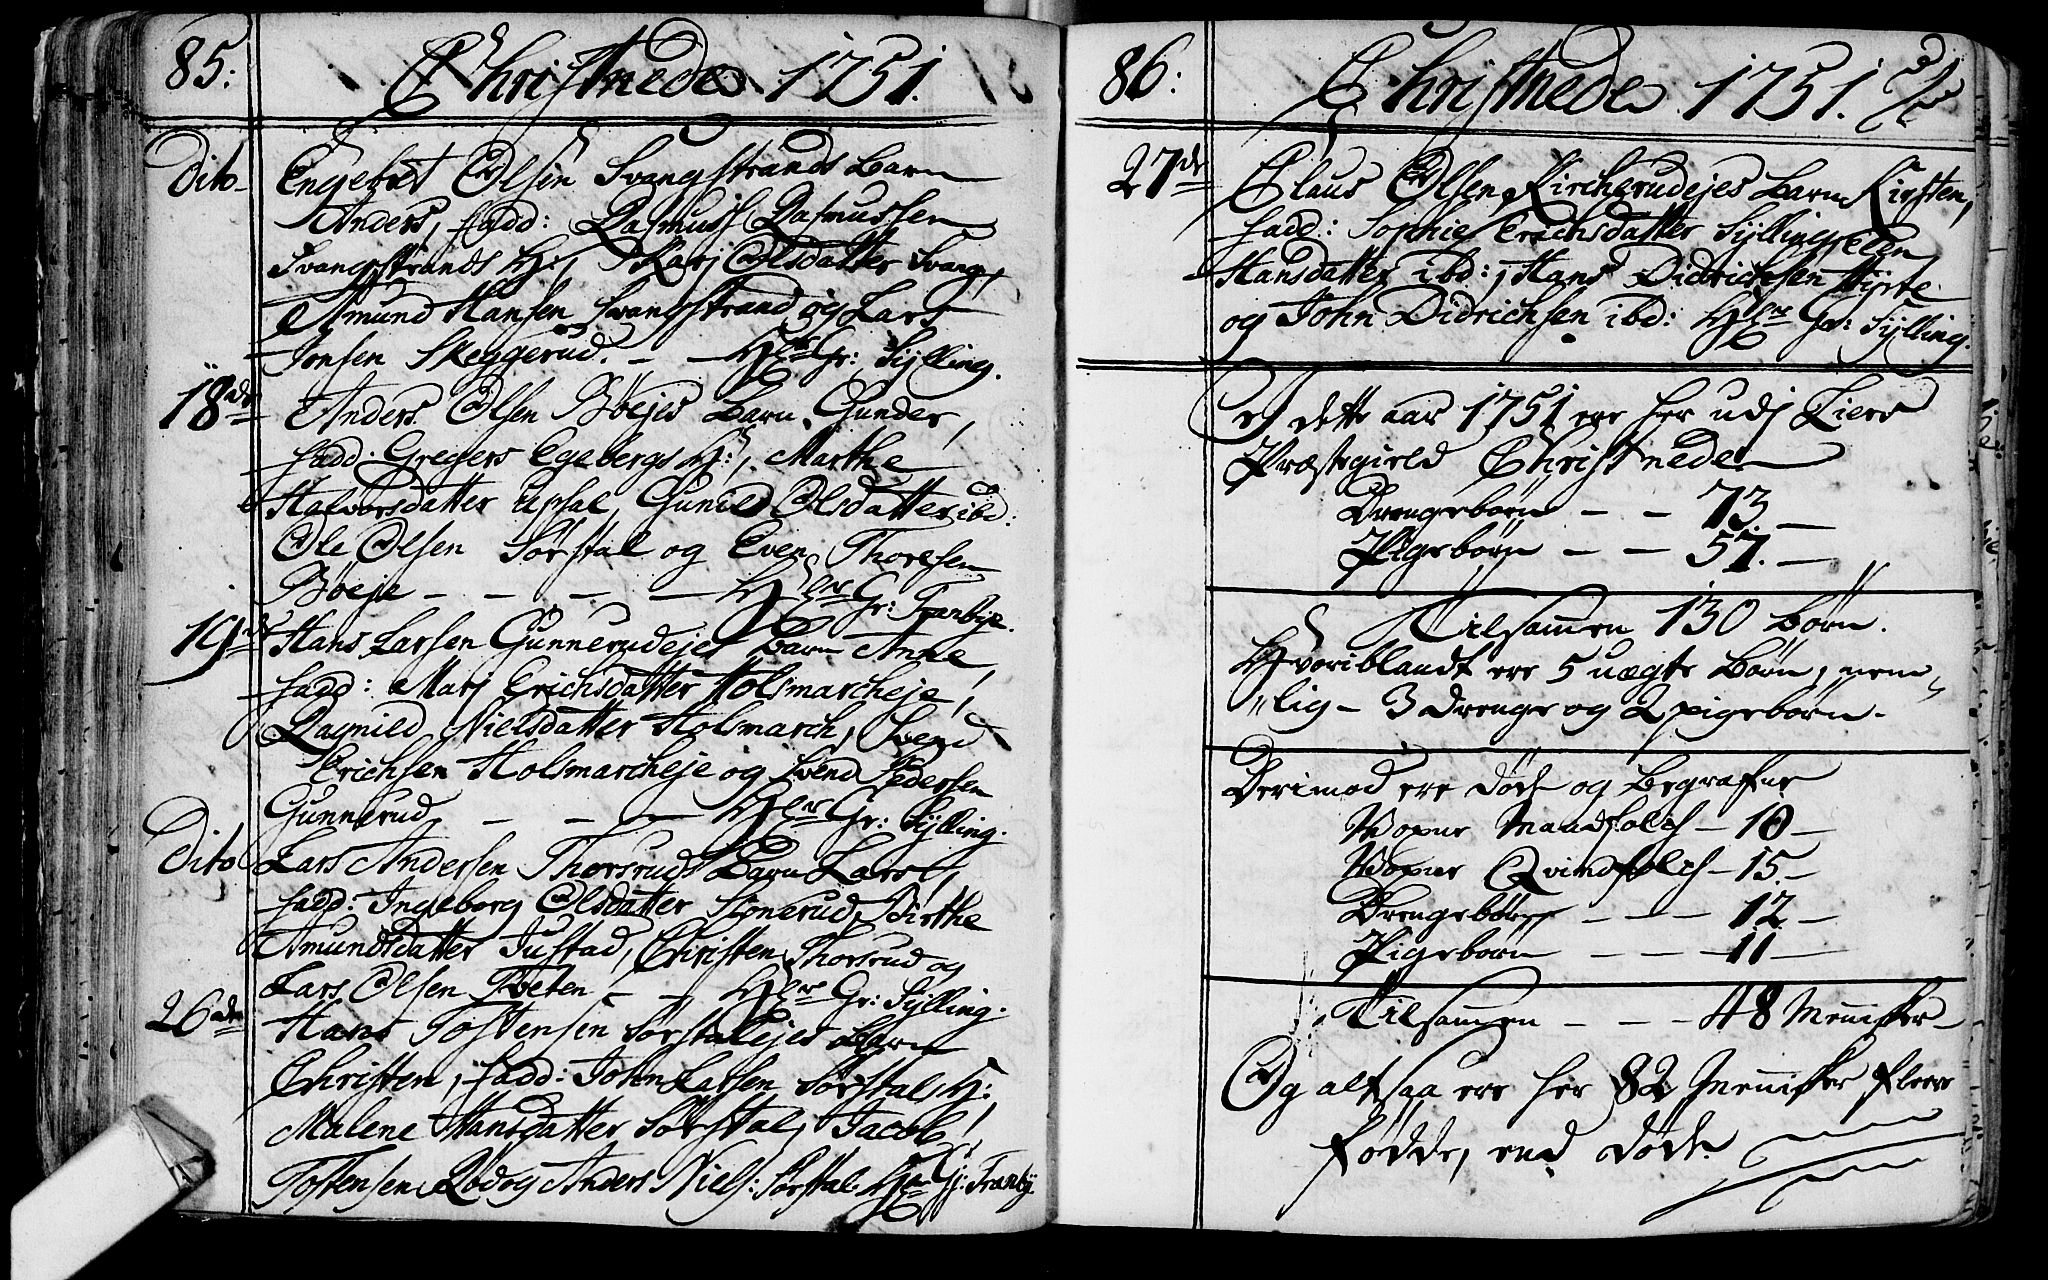 85: Christnede 1751.
Dito Engebret Olsen Svangstrands Barn
Anders, fadd: Rasmus Rasmussen
Svangstrands H:, Kari Olsdatter Svang,
Amund Hansen Svangstrand og Lars
Jonsen Skeggerud. – – Gr: Sylling.
18de Anders Olsen Bøejes Barn Gunder,
fadd: Gregers Egebergs H:, Marthe
Halvorsdatter Upsal, Gunild Olsdatter ibd:
Ole Olsen Sørstal og Even Thoresen
Bøeje – – – – Gr: Tranbye.
19de Hans Larsen Gunnerudejes Barn Anne,
fadd: Marj Erichsdatter Holsmarcheje,
Ragnild Nielsdatter Holsmarch, Svend
Erichsen Holsmarcheje og Svend Pedersen
Gunnerud – – – Gr: Sylling.
Dito Lars Andersen Thorsruds Barn Lars,
fadd: Ingeborg Olsdatter Birthe
Amundsdatter Justad, Christen Thorsrud og
Lars Olsen Tveten – – Gr: Sylling.
26de Hans Tostensen Sørstalejes Barn
Christen, fadd: John Larsen Sørstals H:
Malene Hansdatter Sørstal, Jacob
Tostensen Rød og Anders Niels: Sørstal. Gr: Tranby.
86: Christnede 1751.
27de Claus Olsen Kircherudejes Barn Kirsten,
fadd: Sophie Erichsdatter Sylling, Eden
Hansdatter ibd:, Hans Didrichsen
og John Didrichsen ibd: Gr: Sylling.
I dette aar 1751 ere her udj Liers
Præstegield Christnede
Drengebørn – – 73. –
Pigebørn – – 57. –
Tilsamen 130 Børn.
Hvoriblandt ere 5 uægte Børn, nem=
lig – 3 drenge og 2 pigebørn.
Derimod ere døde og Begrafne
Voxne Mandfolch – 10 –
Voxne Qvindfolch – 15. –
Drengebørn – – – 12 –
Pigebørn – – – 11 –
Tilsamen – – – 48 Meniisker
Og altsaa ere her 82 Meniisker fleere
fødde, end døde.